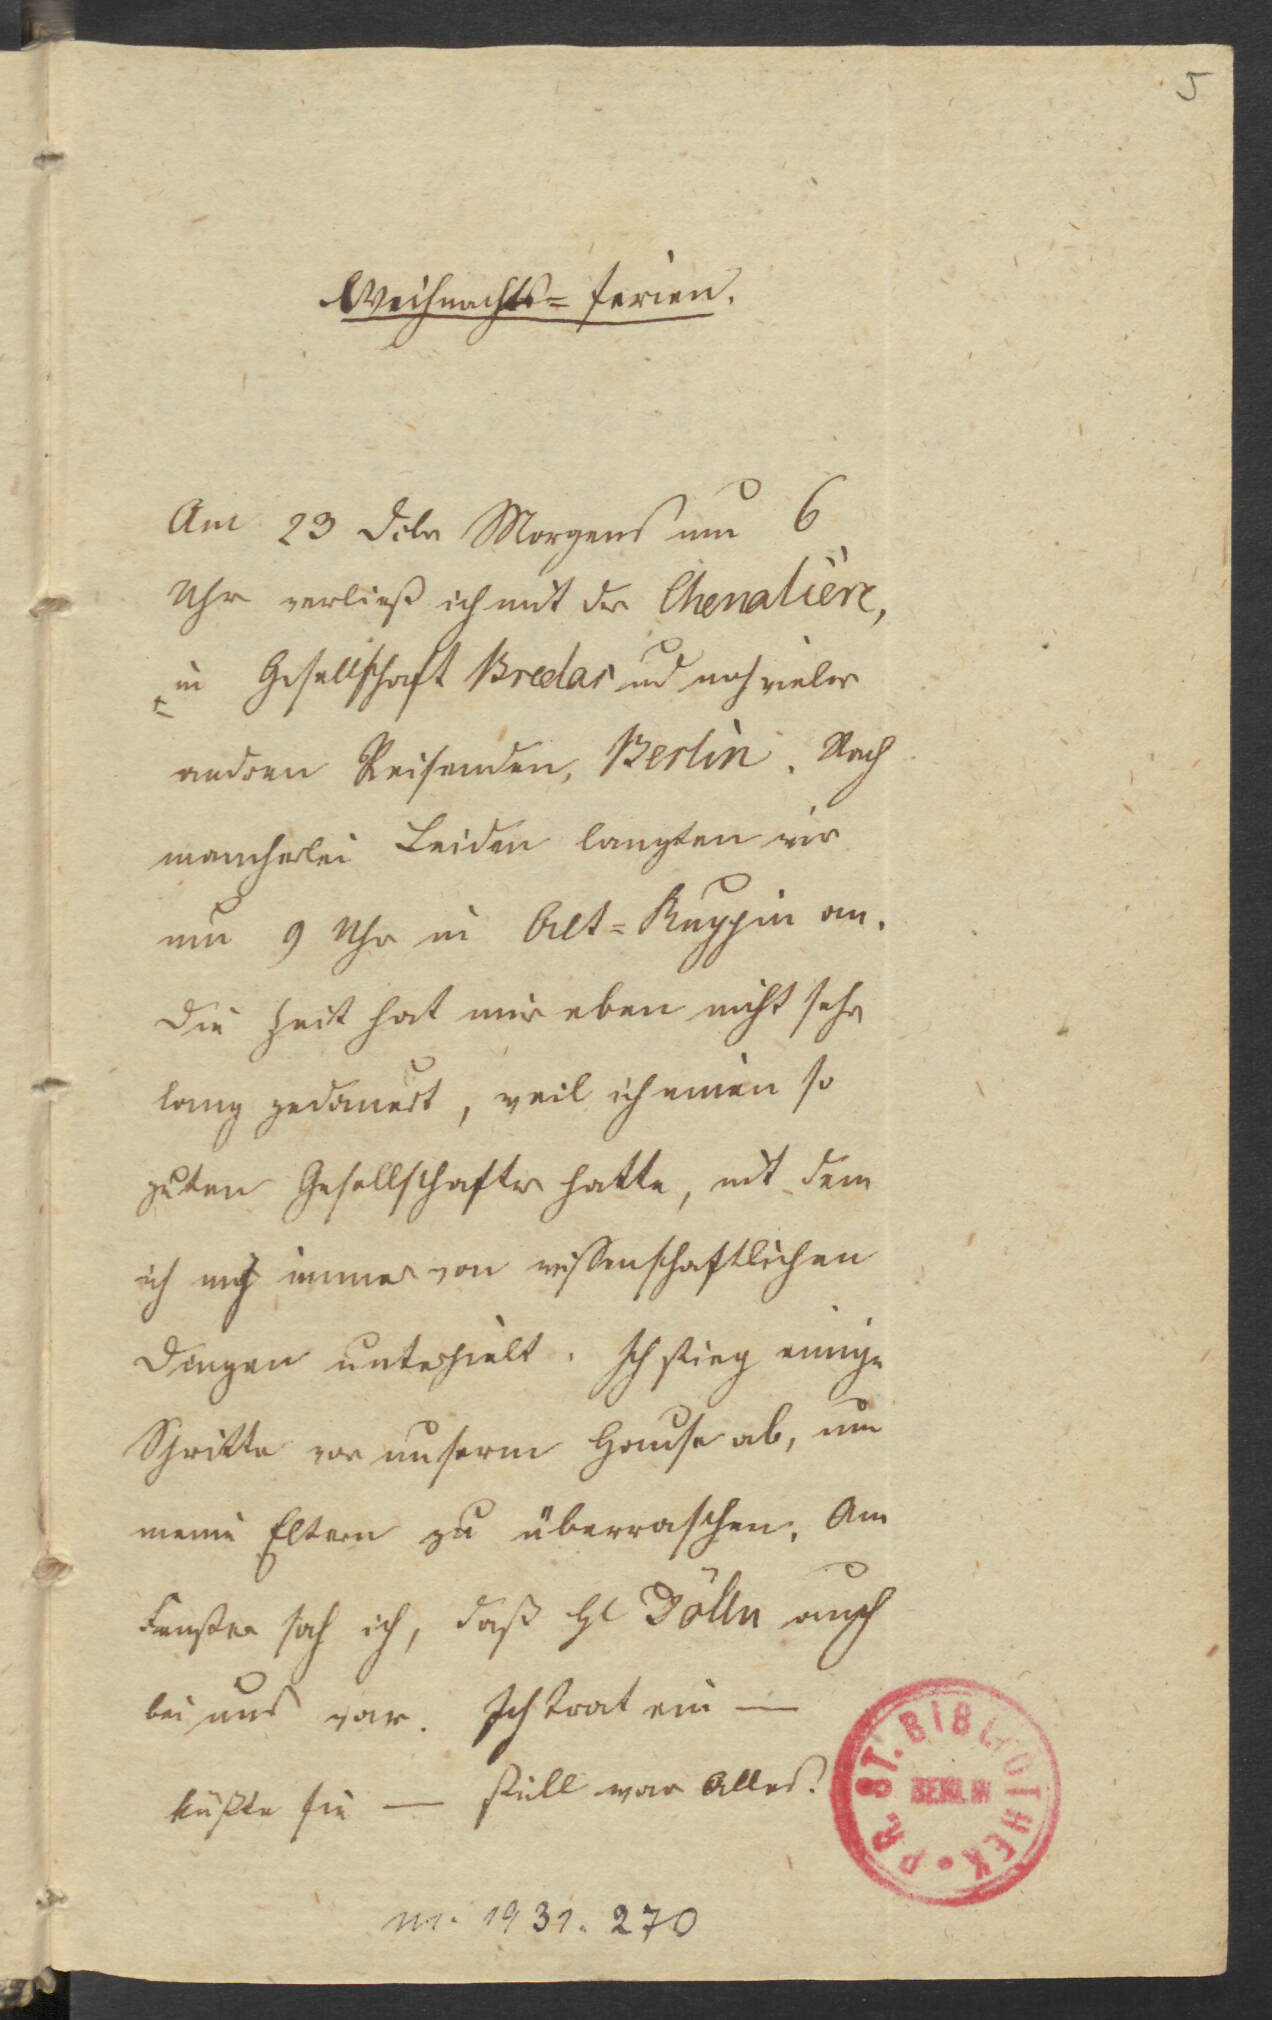 5
Weihnachts=ferien.
Am 23 Dcbr Morgens um 6
Uhr verließ ich mit der Chevalière,
in Gesellschaft Bredas und noch vieler
andren Reisenden, Berlin. Nach
mancherlei Leiden langten wir
um 9 Uhr in Alt=Ruppin an.
Die Zeit hat mir eben nicht sehr
lang gedauert, weil ich einen so
guten Gesellschafter hatte, mit dem
ich mich immer von wissenschaftlichen
Dingen unterhielt. Ich stieg einige
Schritte vor unserm Hause ab, um
meine Eltern zu überraschen. Am
Fenster sah ich, daß Hl Dölln auch
bei uns war. Ich trat ein —
küßte sie — still war Alles.
PR. ST. BIBLIOTHEK
BERLIN
1931. 270